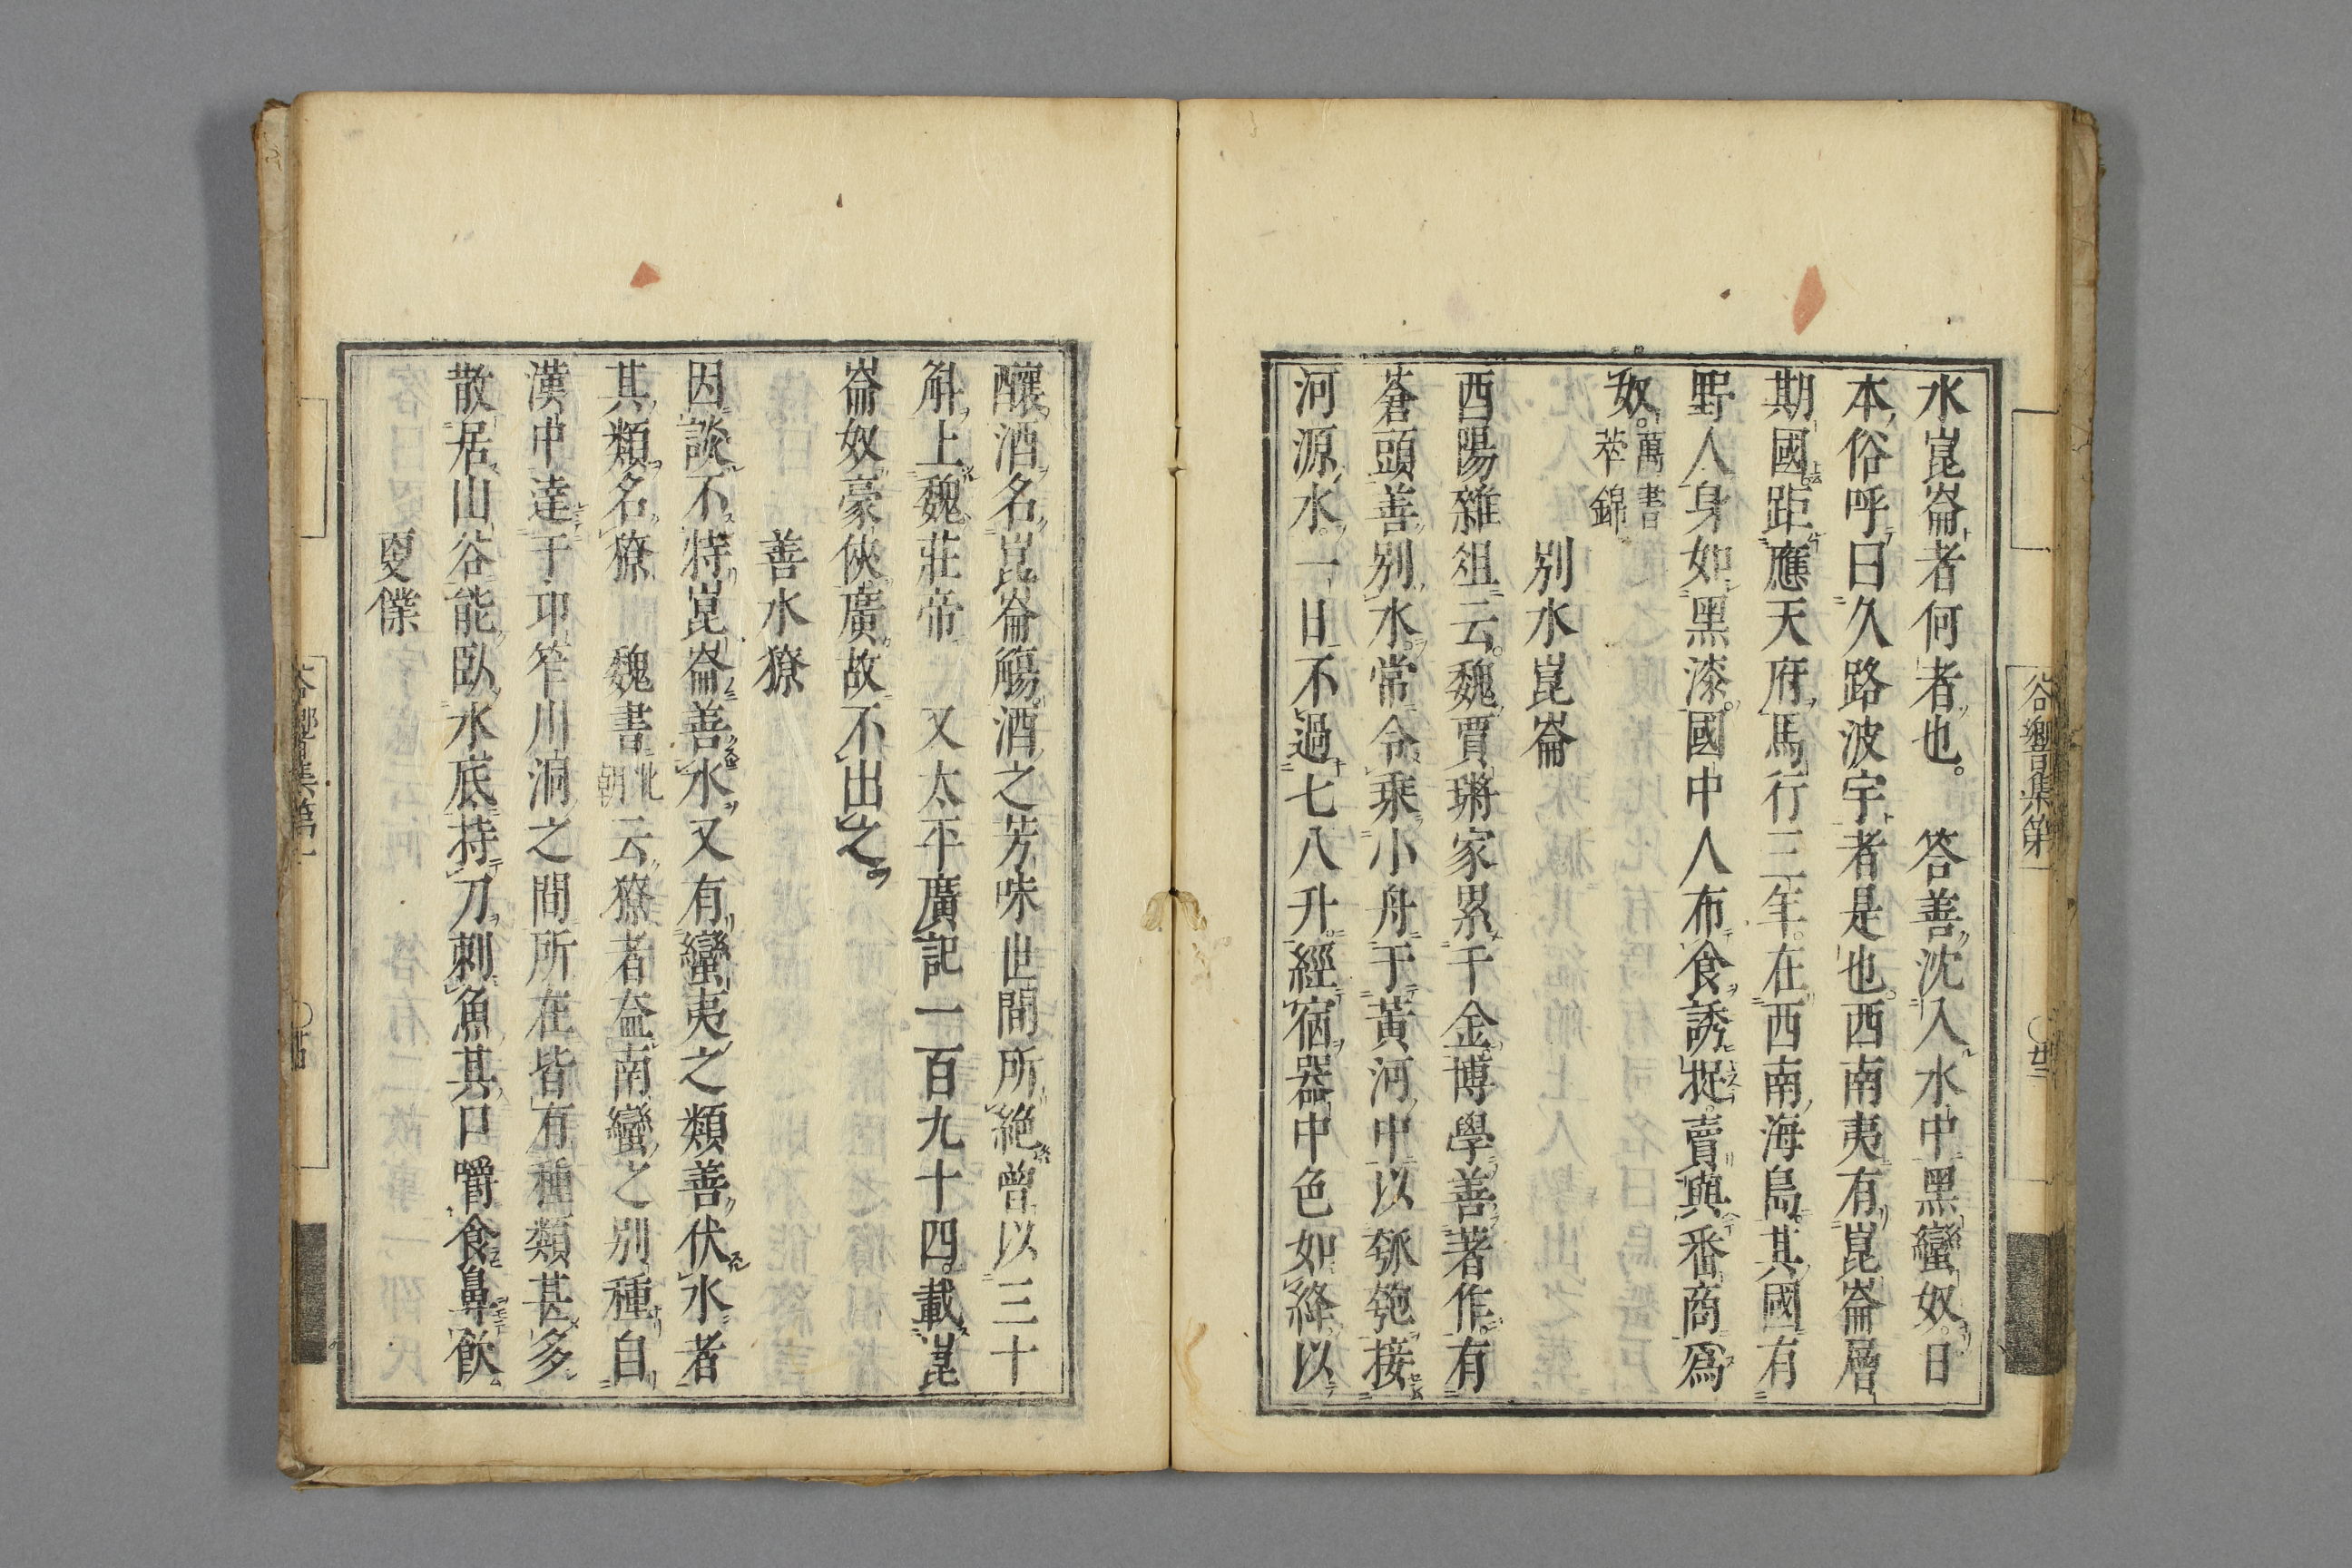 水崑崙者何者也。　答善沈入水中黑蠻奴。日
本俗呼曰久路波宇者是也。西南夷有崑崙層
期國。距應天府馬行三年。在西南海島。其國有
野人身如黑漆。國中人布食誘捉。賣與番商爲
奴。萬書萃錦
別水崑崙
酉陽雜俎云。魏賈鏘家累千金。博學善著作。有
蒼頭善別水。常令乘小舟于黃河中以瓠匏接
河源水。一日不過七八升。經宿器中色如絳。以
釀酒名崑崙觴。酒之芳味世間所絕。曾以三十
斛上魏莊帝　又太平廣記一百九十四。載崑
崙奴豪俠廣故不出之
善水獠
因談不特崑崙善水又有蠻夷之類善伏水者
其類名獠　魏書北朝云獠者蓋南蠻之別種自
漢中達于卭笮川洞之間所在皆有種類甚多
散居山谷能臥水底持刀刺魚其口嚼食鼻飮
夏僕
谷響集第一
〇廿三